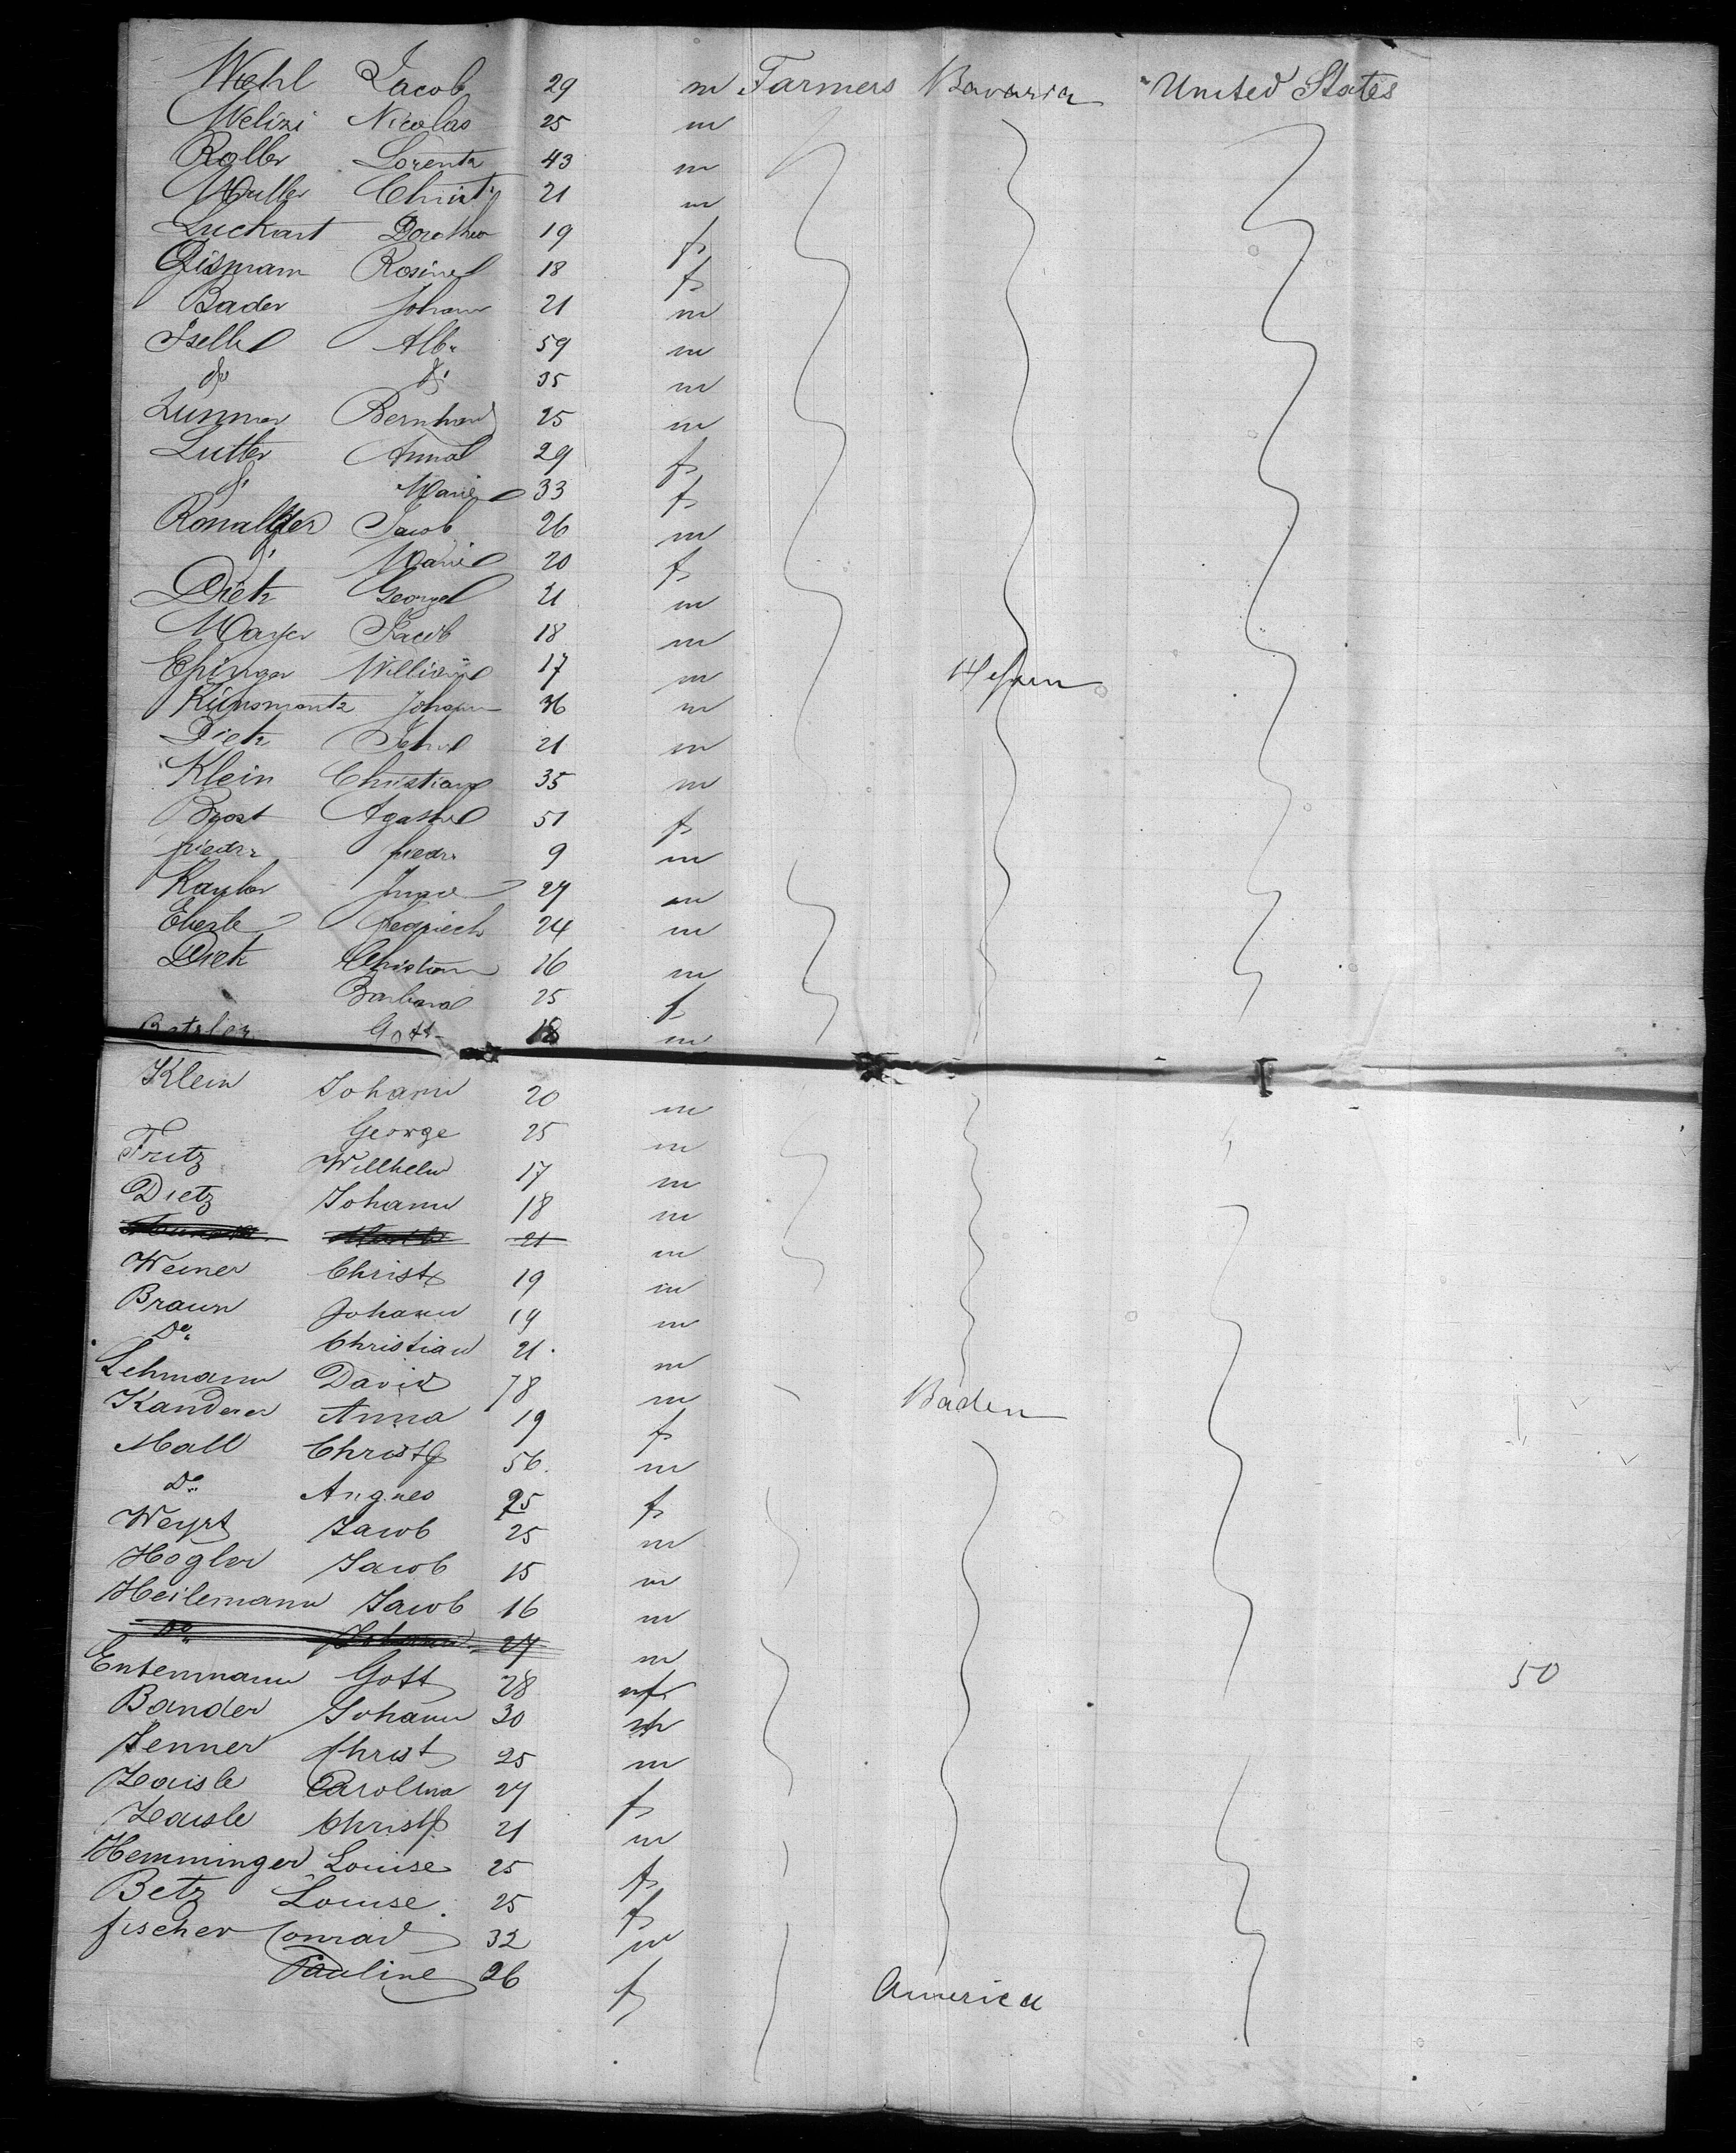 Wehl Jacob 29 m Farmers Bavaria United States
Melizi Nicolas 25 m
Roller Lorentz 43 m
Muller Christ 21 m
Luckart Dorothea 19 f
Rosine 18 f
Bader Johann 21 m
Iselle Alb. 59 m
do do 35 m
Bernhard 25 m
Lutter Anna 29 f
do Marie 33 f
Jacob 26 m
do Marie 20 f
Dietz George 21 m
Mayer Jacob 18 m
Epinger William 17 m Hessen
Johann 36 m
Dietz John 21 m
Klein Christian 35 m
Agathe 51 f
friedr. friedr. 9 m
27 m
Eberle 24 m
Dietz Christian 26 m
Barbara 25 f
Gott. 18 m
Klein Johann 20 m
George 25 m
Fritz Willhelm 17 m
Dietz Johann 18 m
21 m
Weiner Christ 19 m
Braun Johann 19 m
Do Christian 21. m
Lehmann David 78 m Baden
Kanderer Anna 19 f
Mall Christf 56. m
Do Angnes 25 f
Weyrt Jacob 25 m
Hogler Jacob 15 m
Heilemann Jacob 16 m
Do Johann 27 m
Entenmann Gott 28 m 50
Bander Johann 30 m
Jenner Christ 25 m
Zaisle Carolina 27 f
Zaisle Christf 21 m
Hemminger Louise 25 f
Betz Louise. 25 f
fischer Conrad 32 m
Pauline 26 f America